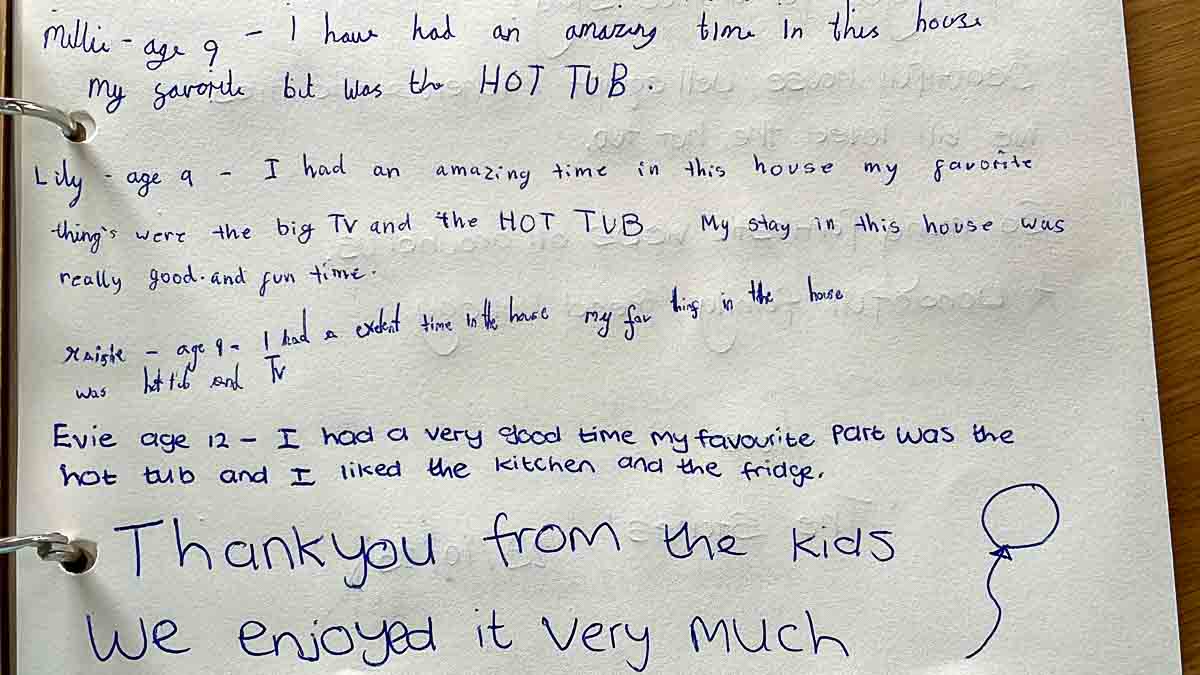 Millie - age 9 - I have had an amazing time in this house
My favorite bit was the HOT TUB.
Lily - age 9 - I had an amazing time in this house my favorite
thing's were the big TV and the HOT TUB My stay in this house was
really good. and fun time.
- age 9 - I had a exelent time in the house my fav thing in the house
was hot tub and TV
Evie age 12 - I had a very good time my favourite part was the
hot tub and I liked the kitchen and the fridge.
Thankyou from the kids
We enjoyed it very much